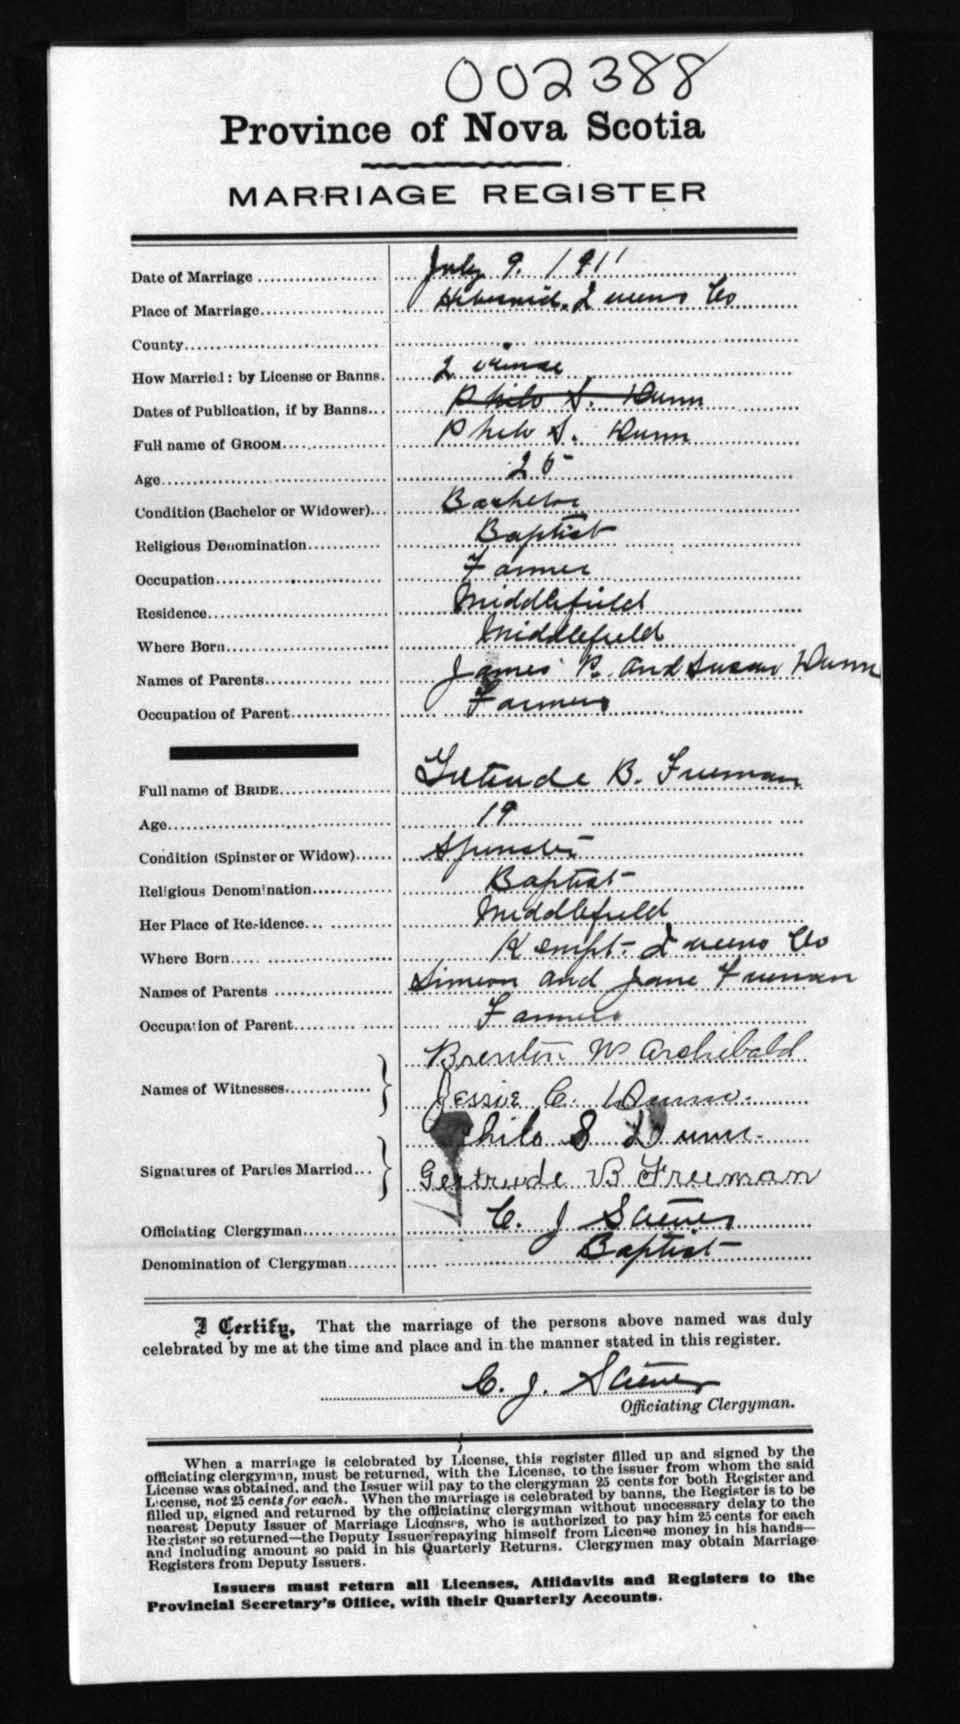 002388
Province of Nova Scotia
MARRIAGE REGISTER
Date of Marriage July 9. 1911
Place of Marriage Hibernia. Queens Co
County
How Married: by License or Banns. License
Dates of Publication, if by Banns Philo S. Dunn
Full name of GROOM Philo S. Dunn
Age 25
Condition (Bachelor or Widower) Bachelor
Religious Denomination Baptist
Occupation Farmer
Residence Middlefield
Where Born Middlefield
Names of Parents James R. and Susan Dunn
Occupation of Parent Farmers
Full name of BRIDE Gertrude B. Freeman
Age 19
Condition (Spinster or Widow) Spinster
Religious Denomination Baptist
Her Place of Residence Middlefield
Where Born Kempt - Queens Co
Names of Parents Simeon and Jane Freeman
Occupation of Parent Farmers
Names of Witnesses Brenton W Archibald
Jessie C. Dunn.
Signatures of Parties Married Philo S Dunn.
Gertrude B Freeman
Officiating Clergyman C. J
Denomination of Clergyman Baptist
I Certify, That the marriage of the persons above named was duly
celebrated by me at the time and place and in the manner stated in this register.
C. J.
Officiating Clergyman.
When a marriage is celebrated by License, this register filled up and signed by the
officiating clergyman, must be returned, with the License, to the issuer from whom the said
License was obtained, and the Issuer will pay to the clergyman 25 cents for both Register and
License, not 25 cents for each. When the marriage is celebrated by banns, the Register is to be
filled up, signed and returned by the officiating clergyman without unnecessary delay to the
nearest Deputy Issuer of Marriage Licenses, who is authorized to pay him 25 cents for each
Register so returned—the Deputy Issuer repaying himself from License money in his hands—
and including amount so paid in his Quarterly Returns. Clergymen may obtain Marriage
Registers from Deputy Issuers.
Issuers must return all Licenses, Affidavits and Registers to the
Provincial Secretary's Office, with their Quarterly Accounts.